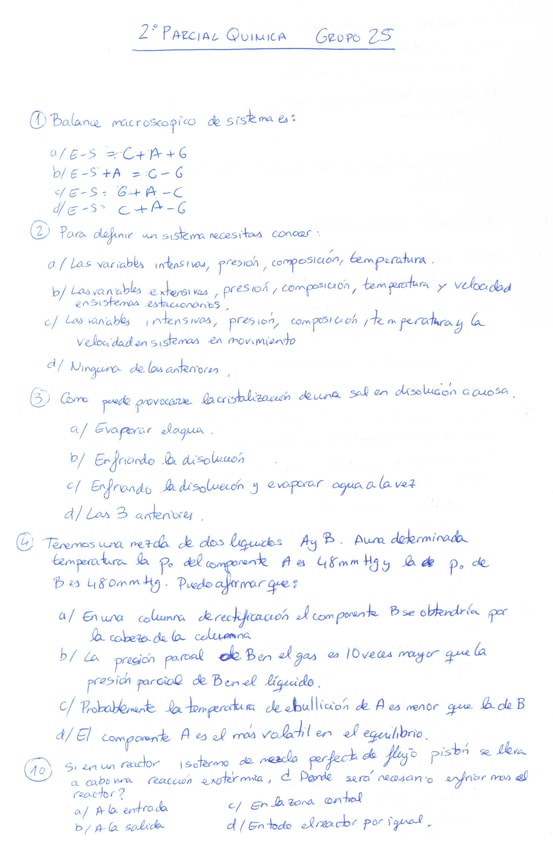 2º PARCIAL QUIMICA GRUPO 25
① Balance macroscopico de sistema es:
a/ E-S = C+A+G
b/ E-S+A = C-G
c/ E-S = G+A-C
d/ E-S = C+A-G
② Para definir un sistema necesitas conocer:
a/ Las variables intensivas, presión, composición, temperatura.
b/ Las variables extensivas, presión, composición, temperatura y velocidad
en sistemas estacionarios.
c/ Las variables intensivas, presión, composición, temperatura y la
velocidad en sistemas en movimiento
d/ Ninguna de las anteriores.
③ Cómo puede provocarse la cristalización de una sal en disolución acuosa.
a/ Evaporar el agua.
b/ Enfriando la disolución
c/ Enfriando la disolución y evaporar agua a la vez
d/ Las 3 anteriores.
④ Tenemos una mezcla de dos líquidos A y B. A una determinada
temperatura la p₀ del componente A es 48 mm Hg y la de p₀ de
B es 480 mm Hg. Puedo afirmar que:
a/ En una columna de rectificación el componente B se obtendría por
la cabeza de la columna
b/ La presión parcial de B en el gas es 10 veces mayor que la
presión parcial de B en el líquido.
c/ Probablemente la temperatura de ebullición de A es menor que la de B
d/ El componente A es el más volatil en el equilibrio.
⑩ Si en un reactor isotermo de mezcla perfecta de flujo pistón se lleva
a cabo una reacción exotérmica, ¿Donde será necesario enfriar mas el
reactor?
a/ A la entrada c/ En la zona central
b/ A la salida d/ En todo el reactor por igual.